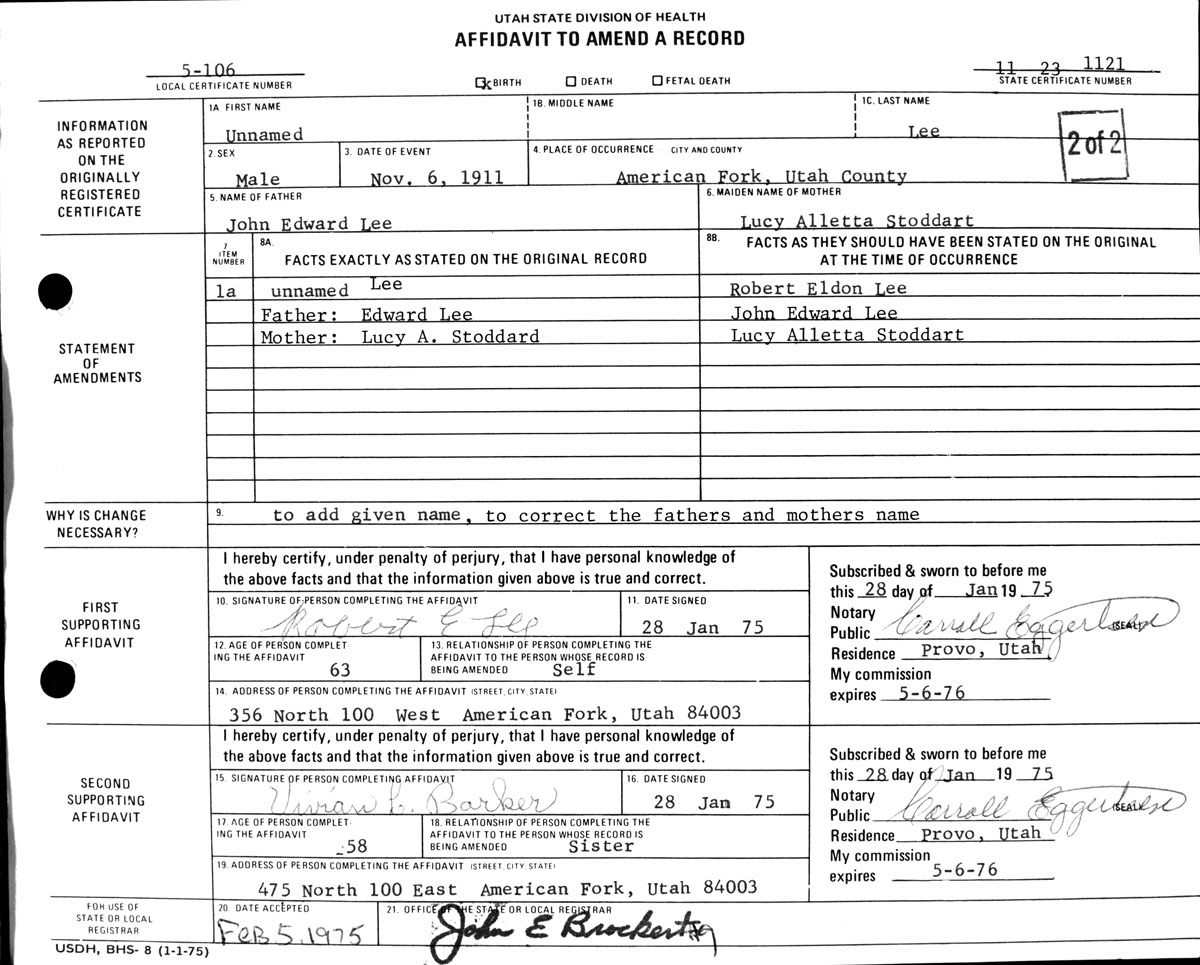 UTAH STATE DIVISION OF HEALTH
AFFIDAVIT TO AMEND A RECORD
5-106
LOCAL CERTIFICATE NUMBER
BIRTH DEATH FETAL DEATH
11 23 1121
STATE CERTIFICATE NUMBER
INFORMATION
AS REPORTED
ON THE
ORIGINALLY
REGISTERED
CERTIFICATE
1A. FIRST NAME
Unnamed
1B. MIDDLE NAME
1C. LAST NAME
Lee
2 of 2
2. SEX
Male
3. DATE OF EVENT
Nov. 6, 1911
4. PLACE OF OCCURRENCE CITY AND COUNTY
American Fork, Utah County
5. NAME OF FATHER
John Edward Lee
6. MAIDEN NAME OF MOTHER
Lucy Alletta Stoddart
STATEMENT
OF
AMENDMENTS
7
ITEM
NUMBER
8A.
FACTS EXACTLY AS STATED ON THE ORIGINAL RECORD
8B.
FACTS AS THEY SHOULD HAVE BEEN STATED ON THE ORIGINAL
AT THE TIME OF OCCURRENCE
1a unnamed Lee Robert Eldon Lee
Father: Edward Lee John Edward Lee
Mother: Lucy A. Stoddard Lucy Alletta Stoddart
WHY IS CHANGE
NECESSARY?
9. to add given name, to correct the fathers and mothers name
FIRST
SUPPORTING
AFFIDAVIT
I hereby certify, under penalty of perjury, that I have personal knowledge of
the above facts and that the information given above is true and correct.
10. SIGNATURE OF PERSON COMPLETING THE AFFIDAVIT
Robert E Lee
11. DATE SIGNED
28 Jan 75
12. AGE OF PERSON COMPLET-
ING THE AFFIDAVIT
63
13. RELATIONSHIP OF PERSON COMPLETING THE
AFFIDAVIT TO THE PERSON WHOSE RECORD IS
BEING AMENDED Self
14. ADDRESS OF PERSON COMPLETING THE AFFIDAVIT (STREET, CITY, STATE)
356 North 100 West American Fork, Utah 84003
Subscribed & sworn to before me
this 28 day of Jan 19 75
Notary
Public Carroll Eggertsen (SEAL)
Residence Provo, Utah
My commission
expires 5-6-76
SECOND
SUPPORTING
AFFIDAVIT
I hereby certify, under penalty of perjury, that I have personal knowledge of
the above facts and that the information given above is true and correct.
15. SIGNATURE OF PERSON COMPLETING AFFIDAVIT
Vivian L. Barker
16. DATE SIGNED
28 Jan 75
17. AGE OF PERSON COMPLET-
ING THE AFFIDAVIT
58
18. RELATIONSHIP OF PERSON COMPLETING THE
AFFIDAVIT TO THE PERSON WHOSE RECORD IS
BEING AMENDED Sister
19. ADDRESS OF PERSON COMPLETING THE AFFIDAVIT (STREET, CITY, STATE)
475 North 100 East American Fork, Utah 84003
Subscribed & sworn to before me
this 28 day of Jan 19 75
Notary
Public Carroll Eggertsen (SEAL)
Residence Provo, Utah
My commission
expires 5-6-76
FOR USE OF
STATE OR LOCAL
REGISTRAR
20. DATE ACCEPTED
Feb 5, 1975
21. OFFICE OF THE STATE OR LOCAL REGISTRAR
John E Brockert
USDH, BHS- 8 (1-1-75)